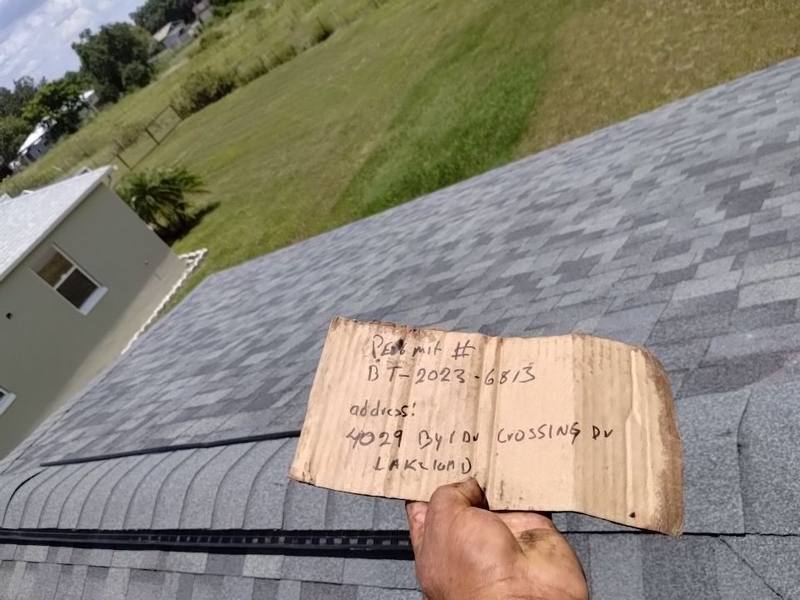 Permit #
BT-2023-6813
address:
4029 CrOSSING Dr
LAKelanD